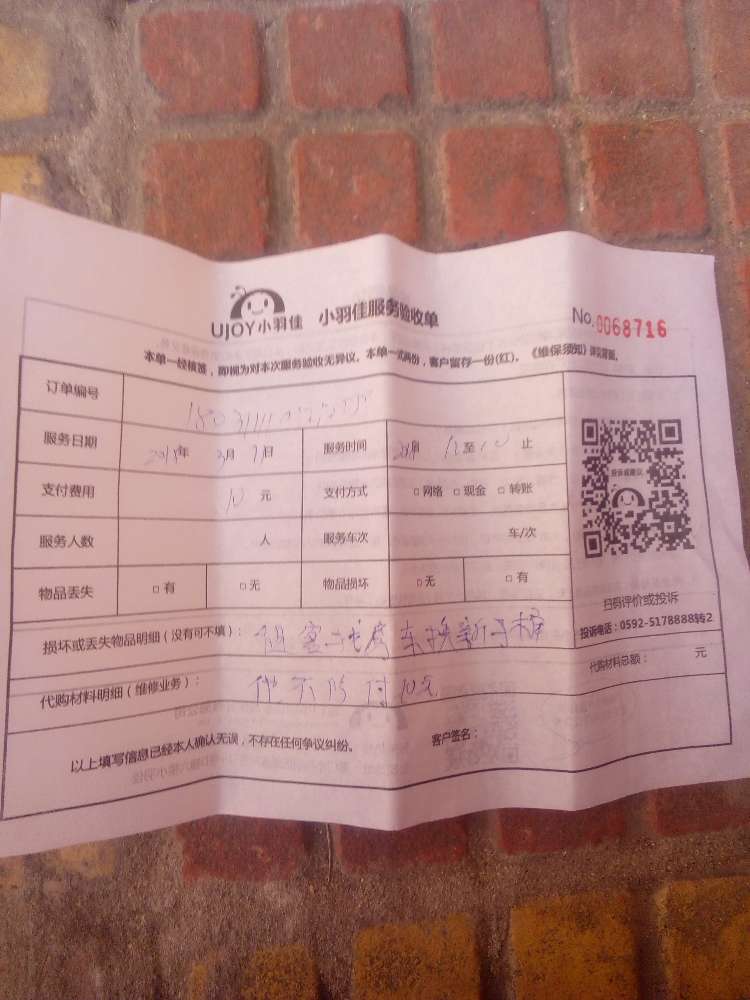 UJOY小羽佳 小羽佳服务验收单 No.0068716
本单一经核签,即视为对本次服务验收无异议。本单一式两份,客户留存一份(红)。《维保须知》详见背面。
订单编号
服务日期 2018年 3月 日 服务时间 至 止
支付费用 10 元 支付方式 □网络 □现金 □转账
服务人数 人 服务车次 车/次
物品丢失 □有 □无 物品损坏 □无 □有
投诉或建议
扫码评价或投诉
投诉电话:0592-5178888转2
损坏或丢失物品明细(没有可不填):
代购材料明细(维修业务): 付10元 代购材料总额: 元
以上填写信息已经本人确认无误,不存在任何争议纠纷。 客户签名: